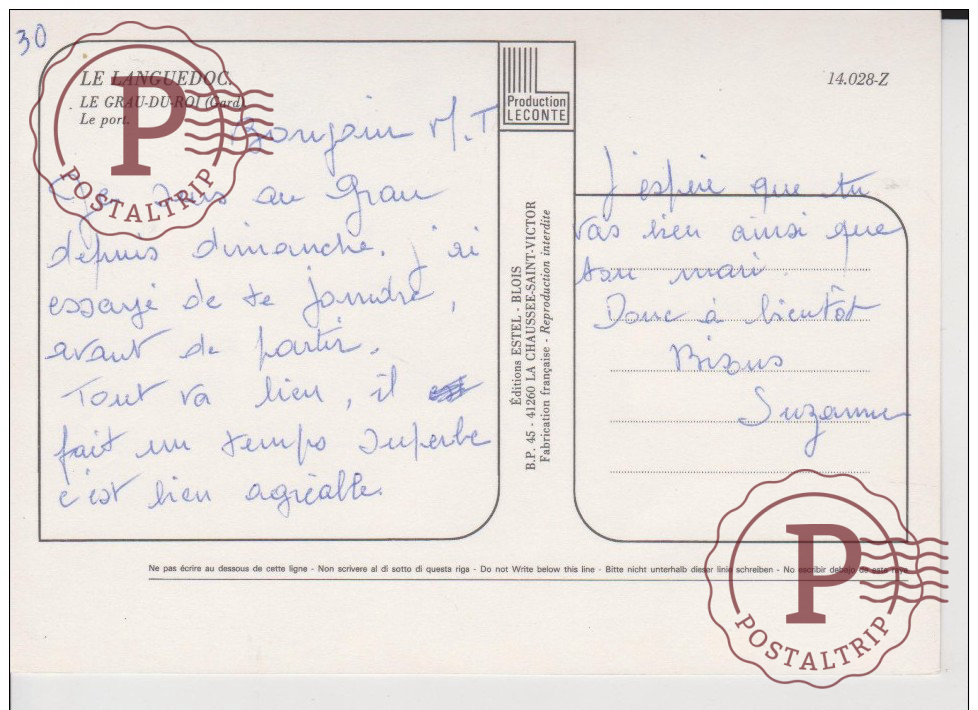 30
LE LANGUEDOC.
LE GRAU-DU-ROI (Gard).
Le port.
Bonjour M.T
Je suis au Grau
depuis dimanche. j'ai
essayé de te joindre,
avant de partir.
Tout va bien, il
fait un temps superbe
c'est bien agréable.
Production
LECONTE
Éditions ESTEL - BLOIS
B.P. 45 - 41260 LA CHAUSSEE-SAINT-VICTOR
Fabrication française - Reproduction interdite
14.028-Z
J'espère que tu
vas bien ainsi que
ton mari.
Donc à bientôt
Bisous
Suzanne
Ne pas écrire au dessous de cette ligne - Non scrivere al di sotto di questa riga - Do not Write below this line - Bitte nicht unterhalb dieser linie schreiben - No escribir debajo de esta raya
P
POSTALTRIP
P
POSTALTRIP